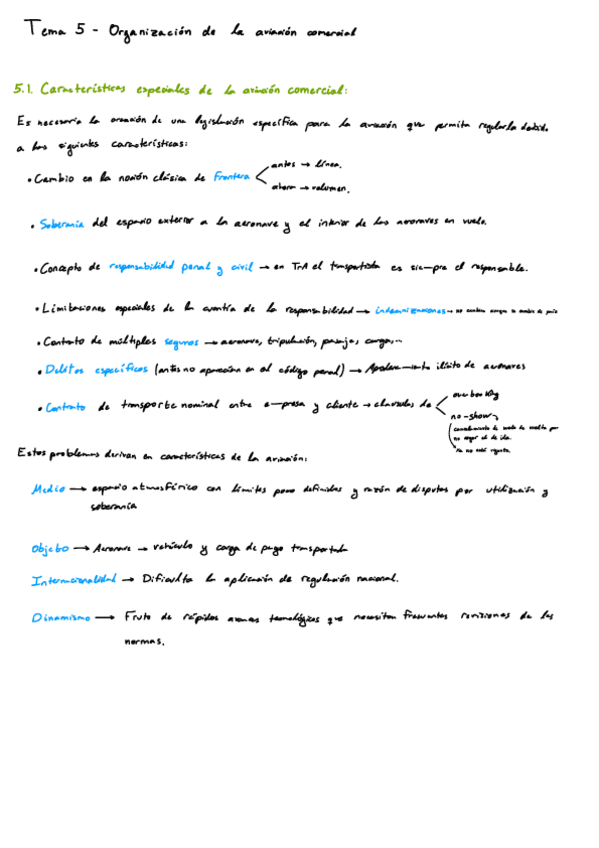 Tema 5 - Organización de la aviación comercial
5.1. Características especiales de la aviación comercial:
Es necesaria la creación de una legislación específica para la aviación que permita regularla debido
a las siguientes características:
• Cambio en la noción clásica de frontera
antes → línea.
ahora → volumen.
• Soberanía del espacio exterior a la aeronave y el interior de las aeronaves en vuelo.
• Concepto de responsabilidad penal y civil → en TrA el transportista es siempre el responsable.
• Limitaciones especiales de la cuantía de la responsabilidad → indemnizaciones → no cambian aunque se cambie de país
• Contrato de múltiples seguros → aeronave, tripulación, pasaje, carga,...
• Delitos específicos (antes no aparecían en el código penal) → Apoderamiento ilícito de aeronaves
• Contrato de transporte nominal entre empresa y cliente → clausulas de
overbooking
no-show
cancelamiento de vuelo de vuelta por
no coger el de ida.
Ya no está
Estos problemas derivan en características de la aviación:
Medio → espacio atmosférico con límites poco definidos y razón de disputas por utilización y
soberanía
Objeto → Aeronave → vehículo y carga de pago transportada
Internacionalidad → Dificulta la aplicación de regulación nacional.
Dinamismo → Fruto de rápidos avances tecnológicos que necesitan frecuentes revisiones de las
normas.